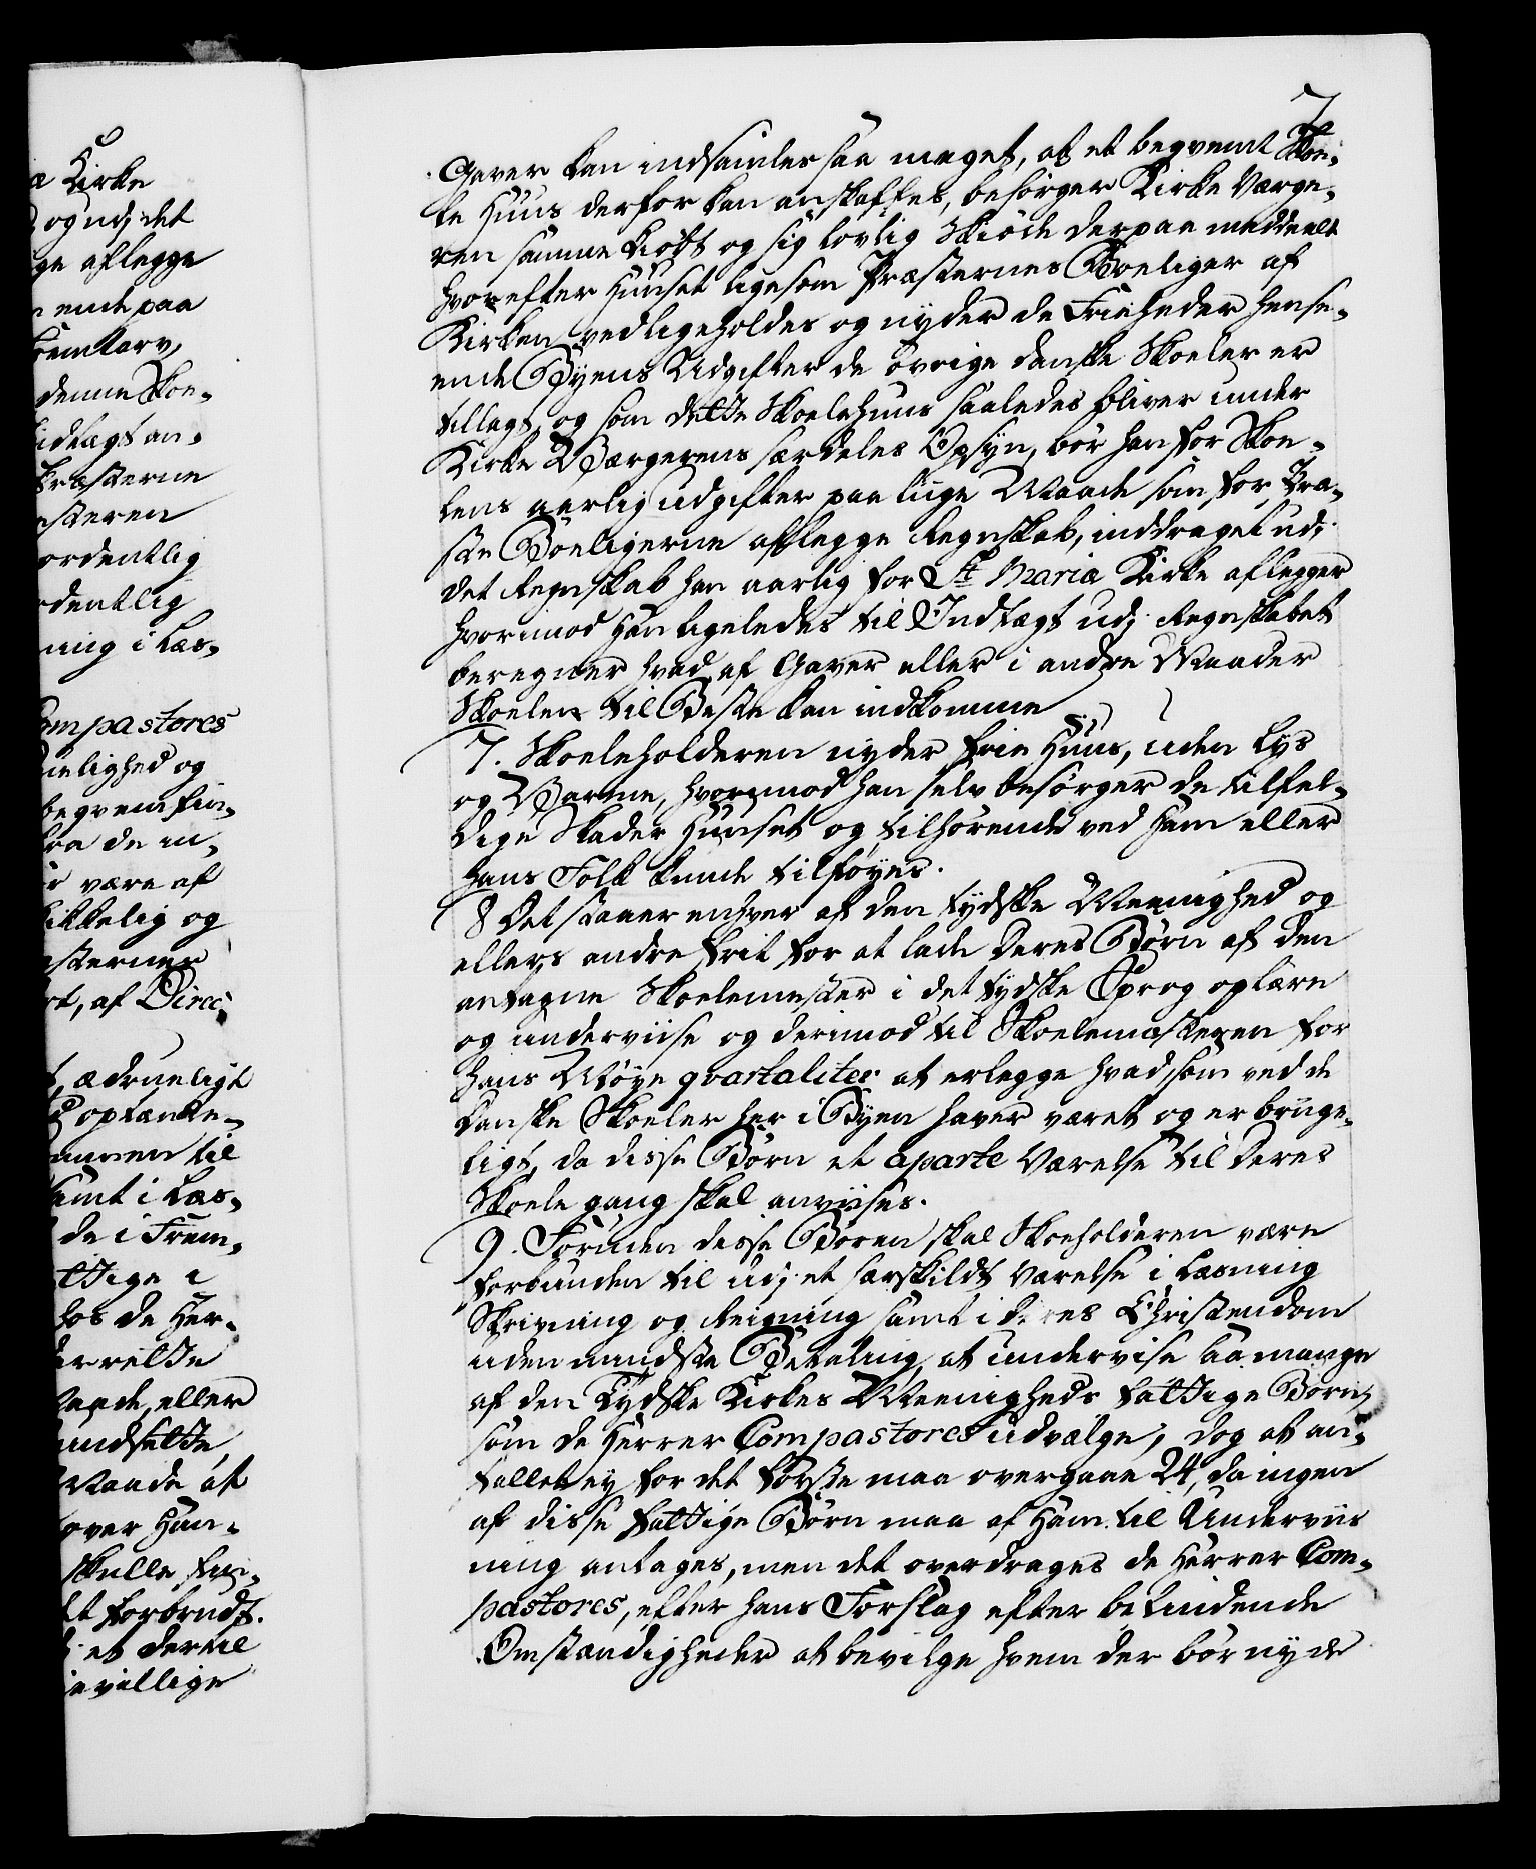 7
Gaver kan indsamles saa meget, at et beqvemt Skoe-
le Huus derfor kan anskaffes, besörger Kirke Værge-
ren samme kiöbt og sig lovlig Skiöde derpaa meddeelt
hvorefter Huuset ligesom Præsternes Boeliger af
Kirken vedligeholdes og nyder de Friheder hense-
ende Byens Udgifter de övrige danske Skoeler er
tillagt, og som dette Skoelehuus saaledes bliver under
Kirke Værgerens særdeles Opsyn, bör han for Skoe-
lens aarlig udgifter paa liige Maade som for Præ-
ste Boeligerne aflegge Regnskab, inddraget udj
det Regnskab han aarlig for St Mariæ Kirke aflegger
hvorimod Han ligeledes til Indtægt udj Regnskabet
beregner hvad af Gaver eller i andre Maader
Skoelen til Beste kan indkomme
7. Skoeleholderen nyder frie Huus, uden Lys
og Varme, hvorimod han selv besörger de tilfæl-
dige Skader Huuset og tilhörende ved Ham eller
hans Folk kunde tilföyes.
8 Det staaer enhver af den tydske Meenighed og
ellers andre frit for at lade deres Börn af den
antagne Skoelemester i det tydske Sprog oplære
og underviise og derimod til Skoelemesteren for
hans Möye qvartaliter at erlegge hvad som ved de
danske Skoeler her i Byen haver været og er bruge-
ligt, da disse Börn et aparte Værelse til deres
Skoele gang skal anviises.
9. Foruden disse Bören skal Skoeholderen være
forbunden til udj et særskildt Værelse i Læsning
Skrivning og Reigning samt i deres Christendom
uden mindste Betaling, at undervise saa mange
af den Tydske Kirkes Meenigheds fattige Börn,
som de Herrer Compastores udvælge, dog at an-
tallet ey for det förste maa overgaae 24, da ingen
af disse fattige Börn maa af Ham til Underviis
ning antages, men det overdrages de Herrer Com-
pastores, efter hans Forslag efter befindende
Omstændigheder at bevilge hvem der bör nyde